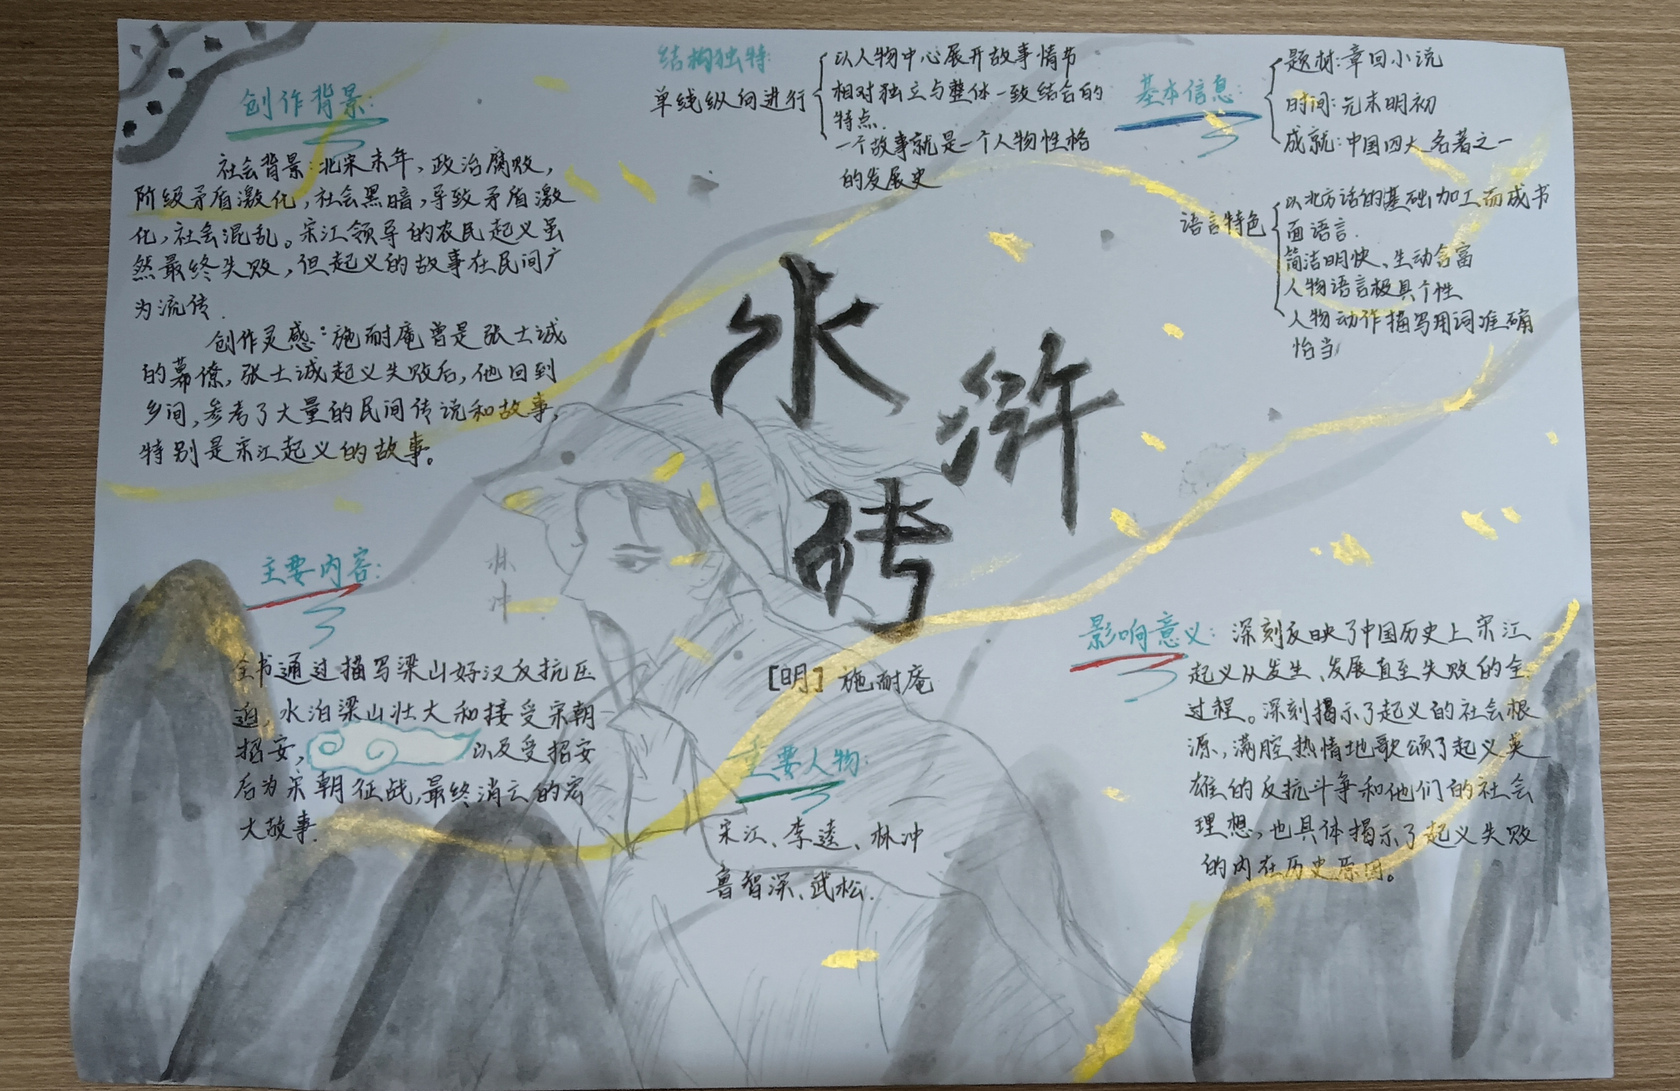 创作背景:
社会背景:北宋末年,政治腐败,
阶级矛盾激化,社会黑暗,导致矛盾激
化,社会混乱。宋江领导的农民起义虽
然最终失败,但起义的故事在民间广
为流传.
创作灵感:施耐庵曾是张士诚
的幕僚,张士诚起义失败后,他回到
乡间,参考了大量的民间传说和故事,
特别是宋江起义的故事。
结构独特:
单线纵向进行
以人物中心展开故事情节
相对独立与整体一致结合的
特点.
一个故事就是一个人物性格
的发展史
基本信息:
题材:章回小说
时间:元末明初
成就:中国四大名著之一
语言特色
以北方话的基础加工而成书
面语言.
简洁明快、生动含富
人物语言极具个性
人物动作描写用词准确
恰当
水
浒
传
[明] 施耐庵
林
冲
主要内容:
全书通过描写梁山好汉反抗压
迫,水泊梁山壮大和接受宋朝
招安, 以及受招安
后为宋朝征战,最终消亡的宏
大故事.
重要人物:
宋江、李逵、林冲
鲁智深、武松.
影响意义:
深刻反映了中国历史上宋江
起义从发生、发展直至失败的全
过程。深刻揭示了起义的社会根
源,满腔热情地歌颂了起义英
雄的反抗斗争和他们的社会
理想,也具体揭示了起义失败
的内在历史原因。